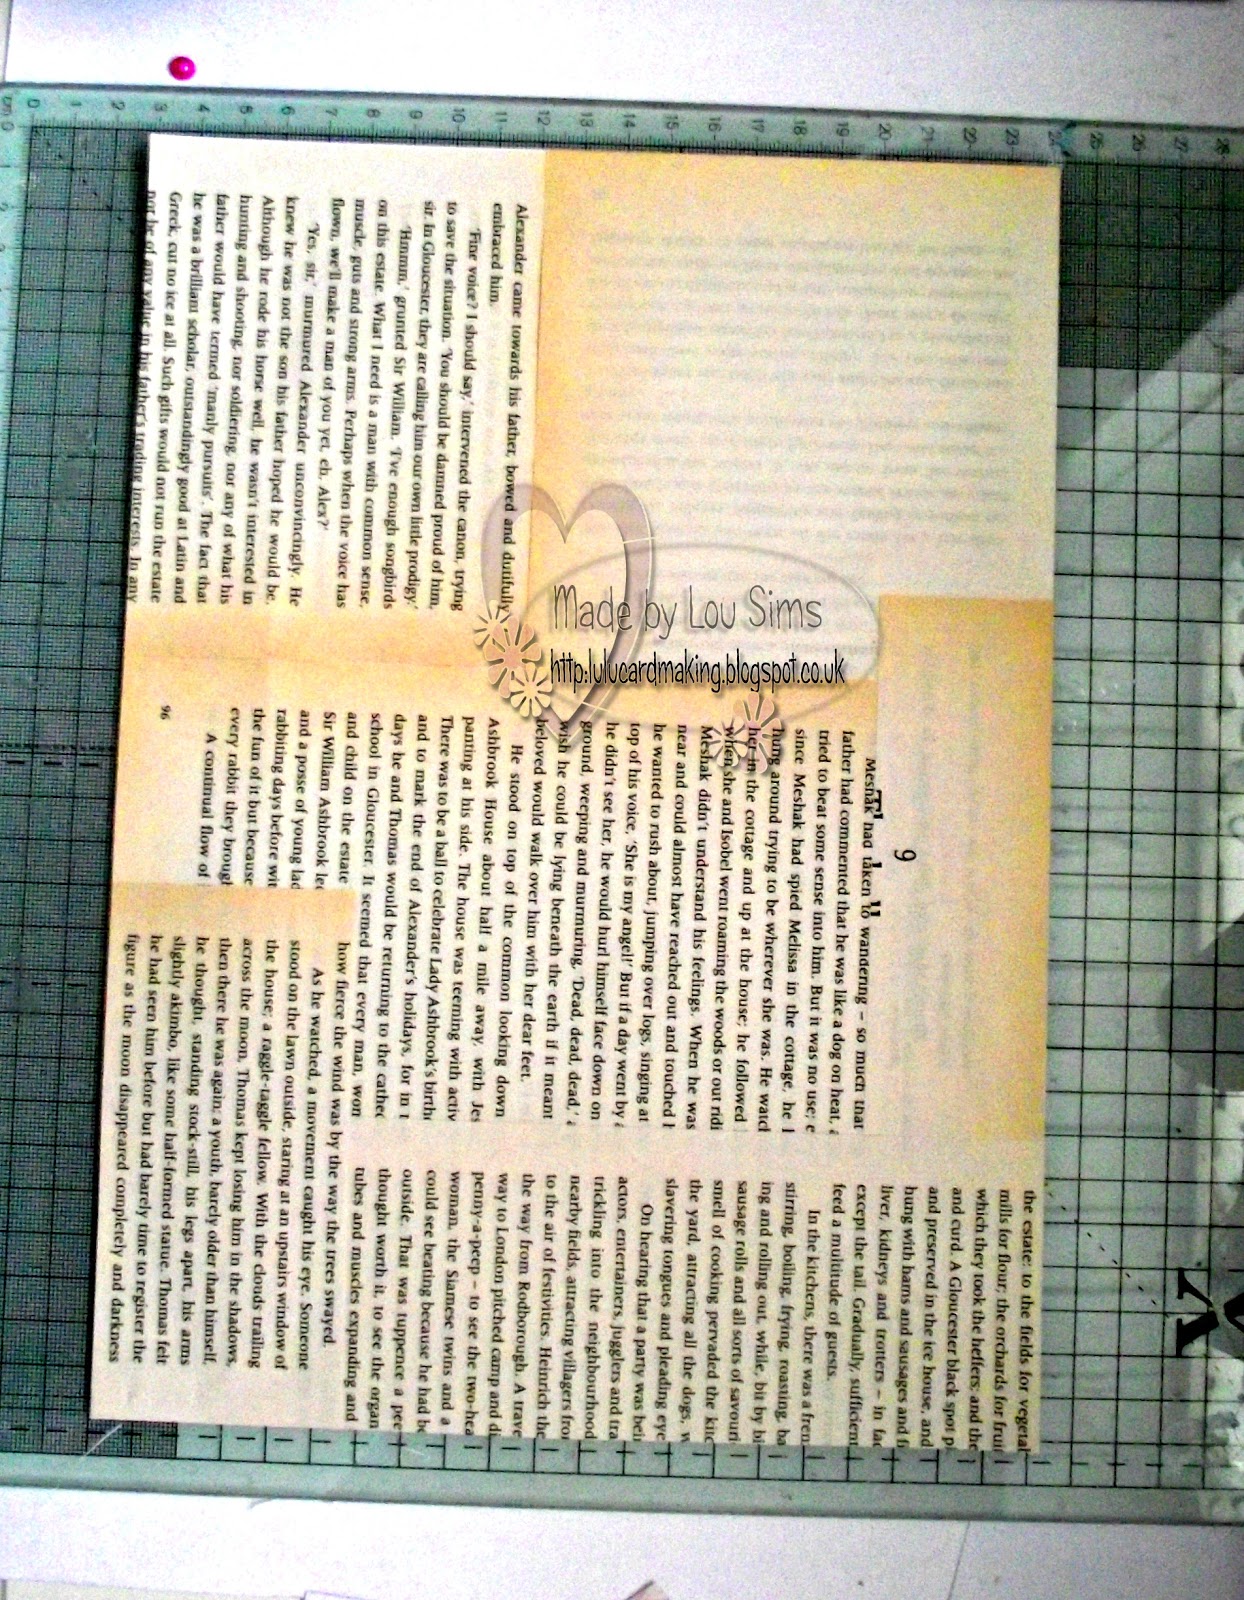 Alexander came towards his father, bowed and dutifully
embraced him.
'Fine voice? I should say,' intervened the canon, trying
to save the situation. 'You should be damned proud of him,
sir. In Gloucester, they are calling him our own little prodigy.'
'Hmmm,' grunted Sir William. 'I've enough songbirds
on this estate. What I need is a man with common sense,
muscle, guts and strong arms. Perhaps when the voice has
flown, we'll make a man of you yet, eh, Alex?'
'Yes, sir,' murmured Alexander unconvincingly. He
knew he was not the son his father hoped he would be.
Although he rode his horse well, he wasn't interested in
hunting and shooting, nor soldiering, nor any of what his
father would have termed 'manly pursuits'. The fact that
he was a brilliant scholar, outstandingly good at Latin and
Greek, cut no ice at all. Such gifts would not run the estate
not be of any value in his father's trading interests. In any
9
Meshak had taken to wandering – so much that
father had commented that he was like a dog on heat, a
tried to beat some sense into him. But it was no use; e
since Meshak had spied Melissa in the cottage, he l
hung around trying to be wherever she was. He watch
her in the cottage and up at the house; he followed
when she and Isobel went roaming the woods or out ridi
Meshak didn't understand his feelings. When he was
near and could almost have reached out and touched h
he wanted to rush about, jumping over logs, singing at
top of his voice, 'She is my angel!' But if a day went by a
he didn't see her, he would hurl himself face down on
ground, weeping and murmuring, 'Dead, dead, dead,' a
wish he could be lying beneath the earth if it meant
beloved would walk over him with her dear feet.
He stood on top of the common looking down
Ashbrook House about half a mile away, with Jes
panting at his side. The house was teeming with activ
There was to be a ball to celebrate Lady Ashbrook's birth
and to mark the end of Alexander's holidays, for in t
days he and Thomas would be returning to the cathed
school in Gloucester. It seemed that every man, won
and child on the estate
Sir William Ashbrook led
and a posse of young lad
rabbiting days before wit
the fun of it but because
every rabbit they brough
A continual flow of
96
how fierce the wind was by the way the trees swayed.
As he watched, a movement caught his eye. Someone
stood on the lawn outside, staring at an upstairs window of
the house; a raggle-taggle fellow. With the clouds trailing
across the moon, Thomas kept losing him in the shadows,
then there he was again; a youth, barely older than himself,
he thought, standing stock-still, his legs apart, his arms
slightly akimbo, like some half-formed statue. Thomas felt
he had seen him before but had barely time to register the
figure as the moon disappeared completely and darkness
the estate: to the fields for vegetal
mills for flour; the orchards for fruit
which they took the heffers; and the
and curd. A Gloucester black spot p
and preserved in the ice house, and
hung with hams and sausages and fi
liver, kidneys and trotters – in fac
except the tail. Gradually, sufficient
feed a multitude of guests.
In the kitchens, there was a fren
stirring, boiling, frying, roasting, ba
ing and rolling out, while, bit by bi
sausage rolls and all sorts of savouri
smell of cooking pervaded the kitc
the yard, attracting all the dogs, w
slavering tongues and pleading eye
On hearing that a party was bei
actors, entertainers, jugglers and tra
trickling into the neighbourhood
nearby fields, attracting villagers fro
to the air of festivities. Heinrich the
the way from Rodborough. A trave
way to London pitched camp and di
penny-a-peep – to see the two-hea
woman, the Siamese twins and a
could see beating because he had b
outside. That was tuppence a pee
thought worth it, to see the organ
tubes and muscles expanding and
Made by Lou Sims
http:lulucardmaking.blogspot.co.uk
cm 0 1 2 3
0 1 2 3 4 5 6 7 8 9 10 11 12 13 14 15 16 17 18 19 20 21 22 23 24 25 26 27 28